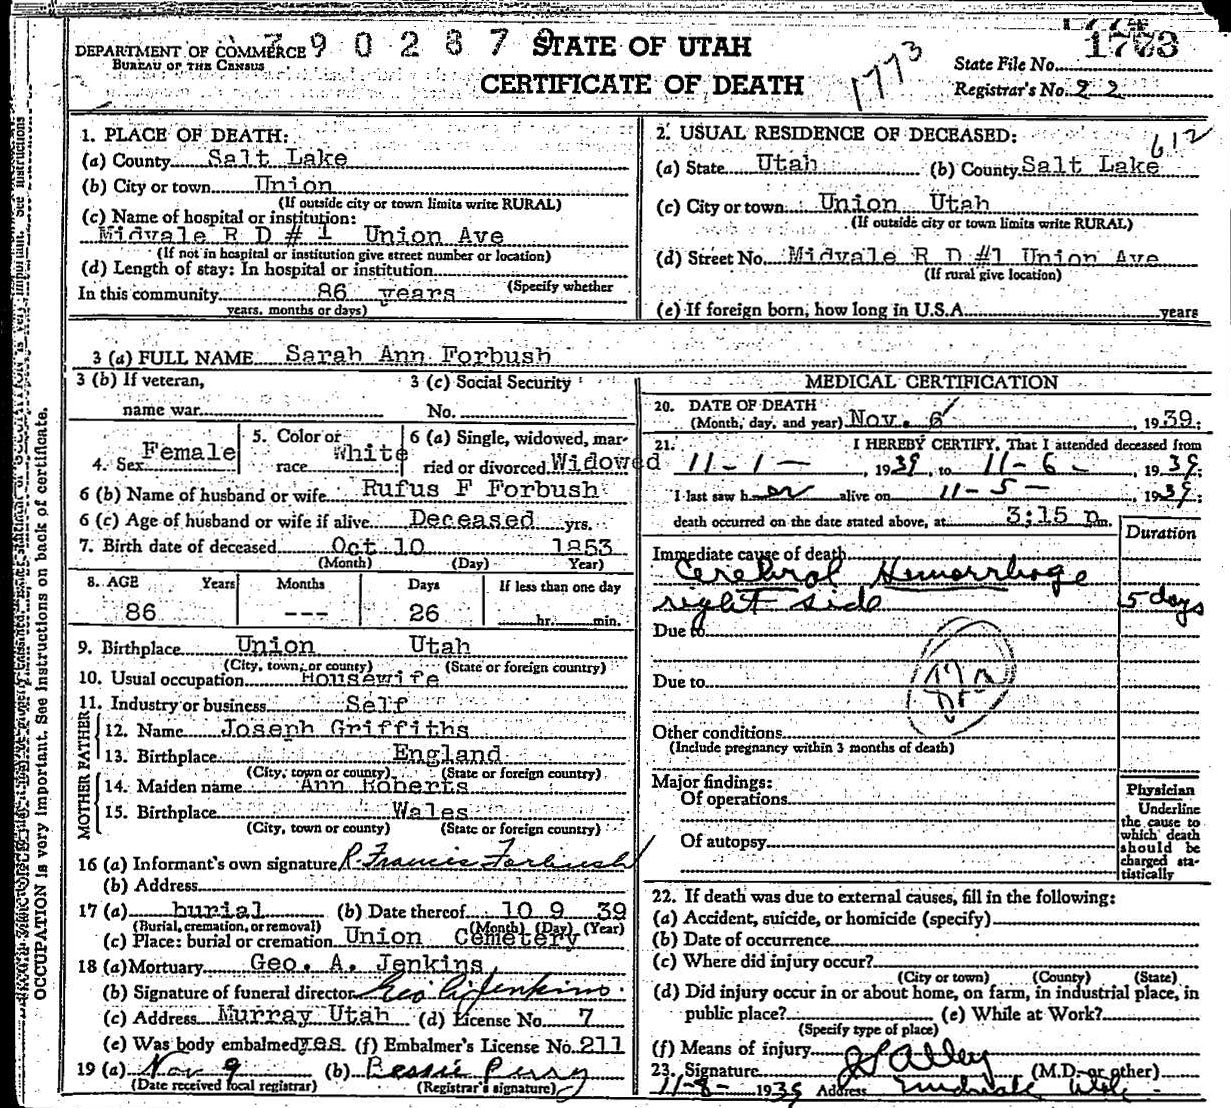 DEPARTMENT OF COMMERCE
BUREAU OF THE CENSUS
7902879
STATE OF UTAH
CERTIFICATE OF DEATH
1773
1773
State File No.
Registrar's No. 22
1. PLACE OF DEATH:
(a) County Salt Lake
(b) City or town Union
(If outside city or town limits write RURAL)
(c) Name of hospital or institution:
Midvale R D # 1 Union Ave
(If not in hospital or institution give street number or location)
(d) Length of stay: In hospital or institution
(Specify whether
In this community 86 years
years, months or days)
2. USUAL RESIDENCE OF DECEASED:
612
(a) State Utah (b) County Salt Lake
(c) City or town Union Utah
(If outside city or town limits write RURAL)
(d) Street No. Midvale R D #1 Union Ave
(If rural give location)
(e) If foreign born, how long in U.S.A. years
3 (a) FULL NAME Sarah Ann Forbush
3 (b) If veteran,
name war
3 (c) Social Security
No.
4. Sex Female
5. Color or race White
6 (a) Single, widowed, married or divorced Widowed
6 (b) Name of husband or wife Rufus F Forbush
6 (c) Age of husband or wife if alive Deceased yrs.
7. Birth date of deceased Oct 10 1853
(Month) (Day) Year)
8. AGE Years Months Days If less than one day
86 --- 26 hr. min.
9. Birthplace Union Utah
(City, town, or county) (State or foreign country)
10. Usual occupation Housewife
11. Industry or business Self
FATHER
12. Name Joseph Griffiths
13. Birthplace England
(City, town or county) (State or foreign country)
MOTHER
14. Maiden name Ann Roberts
15. Birthplace Wales
(City, town or county) (State or foreign country)
16 (a) Informant's own signature R. Francis Forbush
(b) Address
17 (a) burial (b) Date thereof 10 9 39
(Burial, cremation, or removal) (Month) (Day) (Year)
(c) Place: burial or cremation Union Cemetery
18 (a) Mortuary Geo. A. Jenkins
(b) Signature of funeral director Geo A Jenkins.
(c) Address Murray Utah (d) License No. 7
(e) Was body embalmed yes. (f) Embalmer's License No. 211
19 (a) Nov 9 (b) Bessie Perry
(Date received local registrar) (Registrar's signature)
MEDICAL CERTIFICATION
20. DATE OF DEATH
(Month, day, and year) Nov. 6 , 1939;
21. I HEREBY CERTIFY, That I attended deceased from
11-1- , 1939, to 11-6- , 1939;
I last saw her alive on 11-5- , 1939;
death occurred on the date stated above, at 3:15 p.m.
Duration
Immediate cause of death
Cerebral Hemorrhage
right side 5 days
Due to
Due to
Other conditions
(Include pregnancy within 3 months of death)
Major findings:
Of operations
Of autopsy
Physician
Underline
the cause to
which death
should be
charged sta-
tistically
22. If death was due to external causes, fill in the following:
(a) Accident, suicide, or homicide (specify)
(b) Date of occurrence
(c) Where did injury occur?
(City or town) (County) (State)
(d) Did injury occur in or about home, on farm, in industrial place, in
public place? (e) While at Work?
(Specify type of place)
(f) Means of injury
23. Signature J P Alley (M.D. or other)
11-8- 1939 Address Midvale Utah -
OCCUPATION is very important. See instructions on back of certificate.